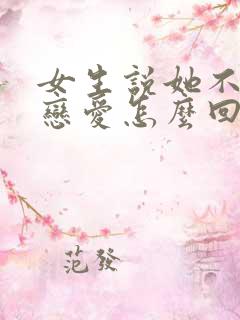 女生說她不
戀愛怎麼回
範發